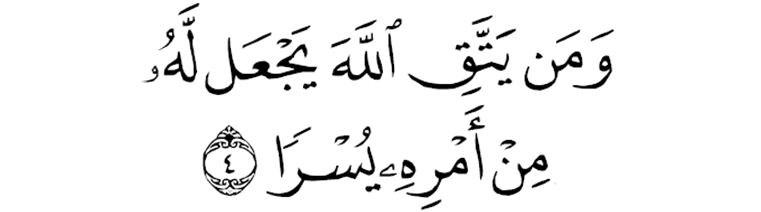 وَمَن يَتَّقِ ٱللَّهَ يَجْعَل لَّهُۥ
مِنْ أَمْرِهِۦ يُسْرًا ٤